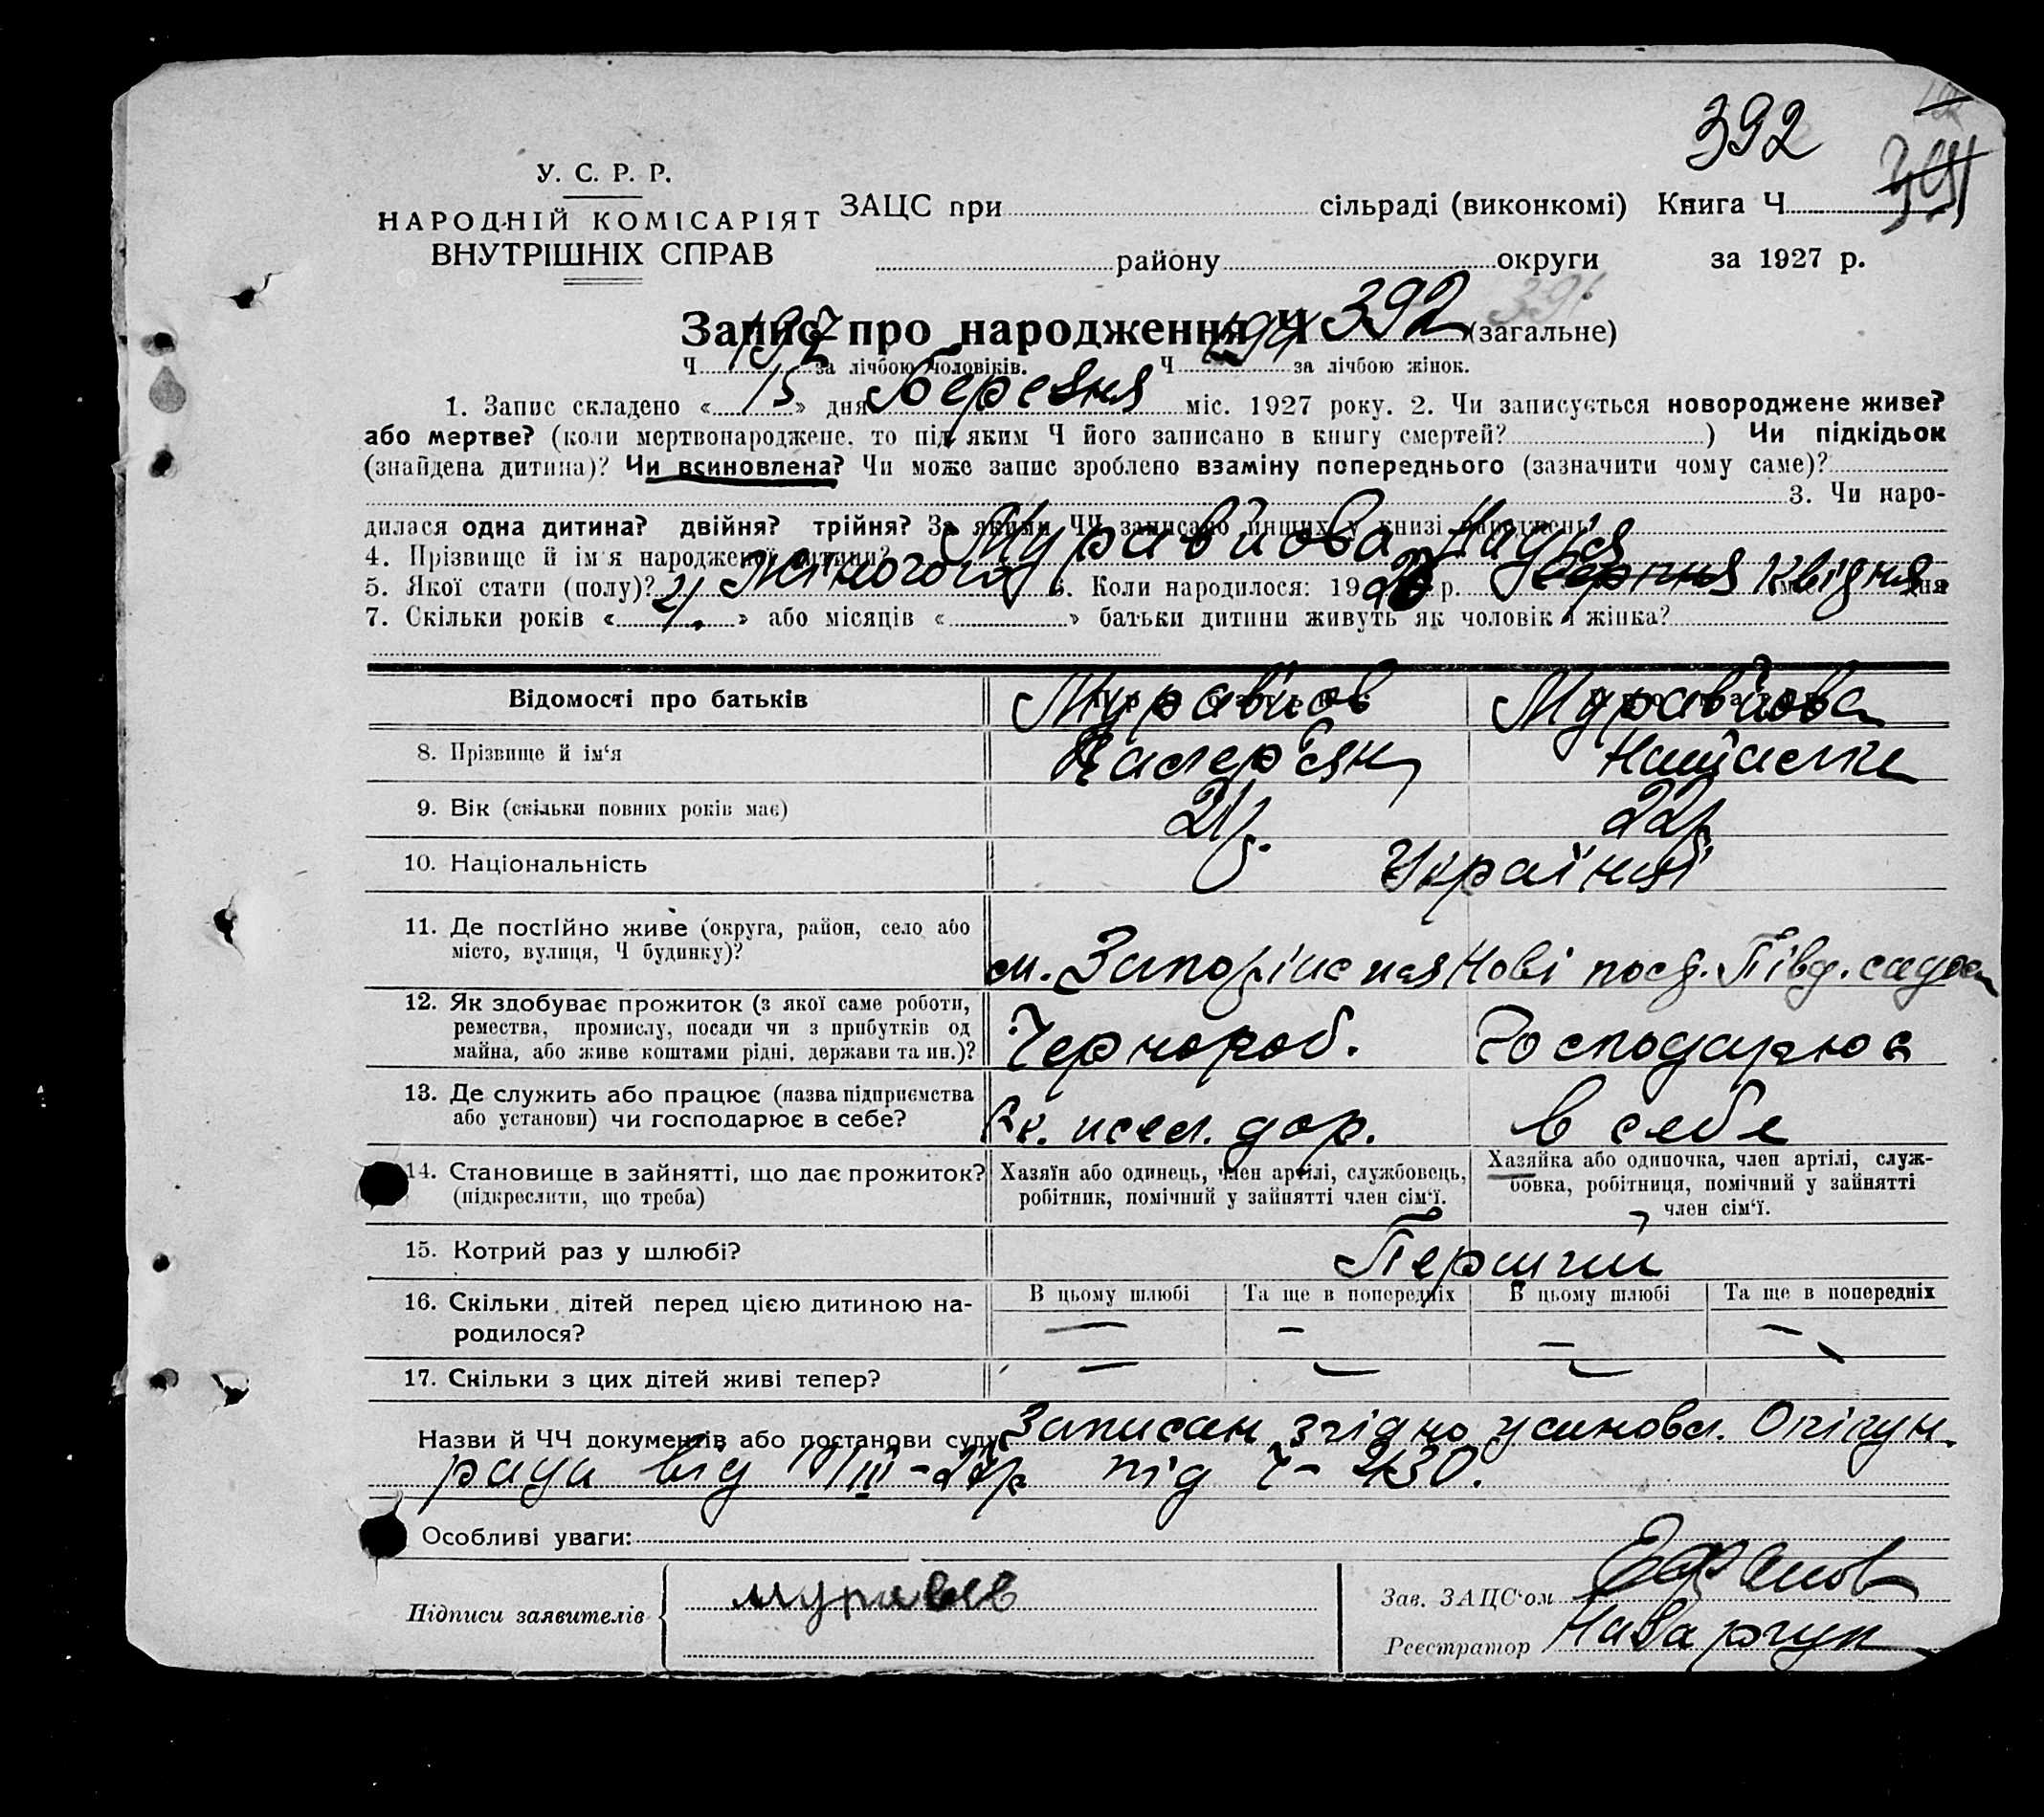 392
У. С. Р. Р.
НАРОДНІЙ КОМІСАРІЯТ
ВНУТРІШНІХ СПРАВ
ЗАЦС при сільраді (виконкомі) Книга Ч
району округи за 1927 р.
Запис про народження Ч 392 391 (загальне)
Ч 197 за лічбою чоловіків. Ч 194 за лічбою жінок.
1. Запис складено « 15 » дня Березня міс. 1927 року. 2. Чи записується новороджене живе?
або мертве? (коли мертвонароджене, то під яким Ч його записано в книгу смертей? ) Чи підкідьок
(знайдена дитина)? Чи всиновлена? Чи може запис зроблено взаміну попереднього (зазначити чому саме)?
3. Чи наро-
дилася одна дитина? двійня? трійня? За якими ЧЧ записано инших у книзі народжень
4. Прізвище й ім'я народженої дитини? Муравйова Надія
5. Якої стати (полу)? Жіночого 6. Коли народилося: 19 р. Серпня Квідня дня
7. Скільки років « » або місяців « » батьки дитини живуть як чоловік і жінка?
Відомості про батьків Муравйов Муравйова
8. Прізвище й ім‘я Валер'ян
9. Вік (скільки повних років має) 22р.
10. Національність Українці
11. Де постійно живе (округа, район, село або
місто, вулиця, Ч будинку)? м. Запоріжжя Нові посд. Півд. садова
12. Як здобуває прожиток (з якої саме роботи,
ремества, промислу, посади чи з прибутків од
майна, або живе коштами рідні, держави та ин.)? Чернороб. Господарює
13. Де служить або працює (назва підприємства
або установи) чи господарює в себе? дор. в себе
14. Становище в зайнятті, що дає прожиток?
(підкреслити, що треба)
Хазяїн або одинець, член артілі, службовець,
робітник, помічний у зайнятті член сім‘ї.
Хазяйка або одиночка, член артілі, служ-
бовка, робітниця, помічний у зайнятті
член сім‘ї.
15. Котрий раз у шлюбі? Перший
16. Скільки дітей перед цією дитиною на-
родилося?
В цьому шлюбі Та ще в попередніх В цьому шлюбі Та ще в попередніх
17. Скільки з цих дітей живі тепер?
Назви й ЧЧ документів або постанови суду Записан згідно усиновл. Опікун.
ради від під Ч - 430.
Особливі уваги:
Підписи заявителів муравьев
Зав. ЗАЦС‘ом
Реєстратор